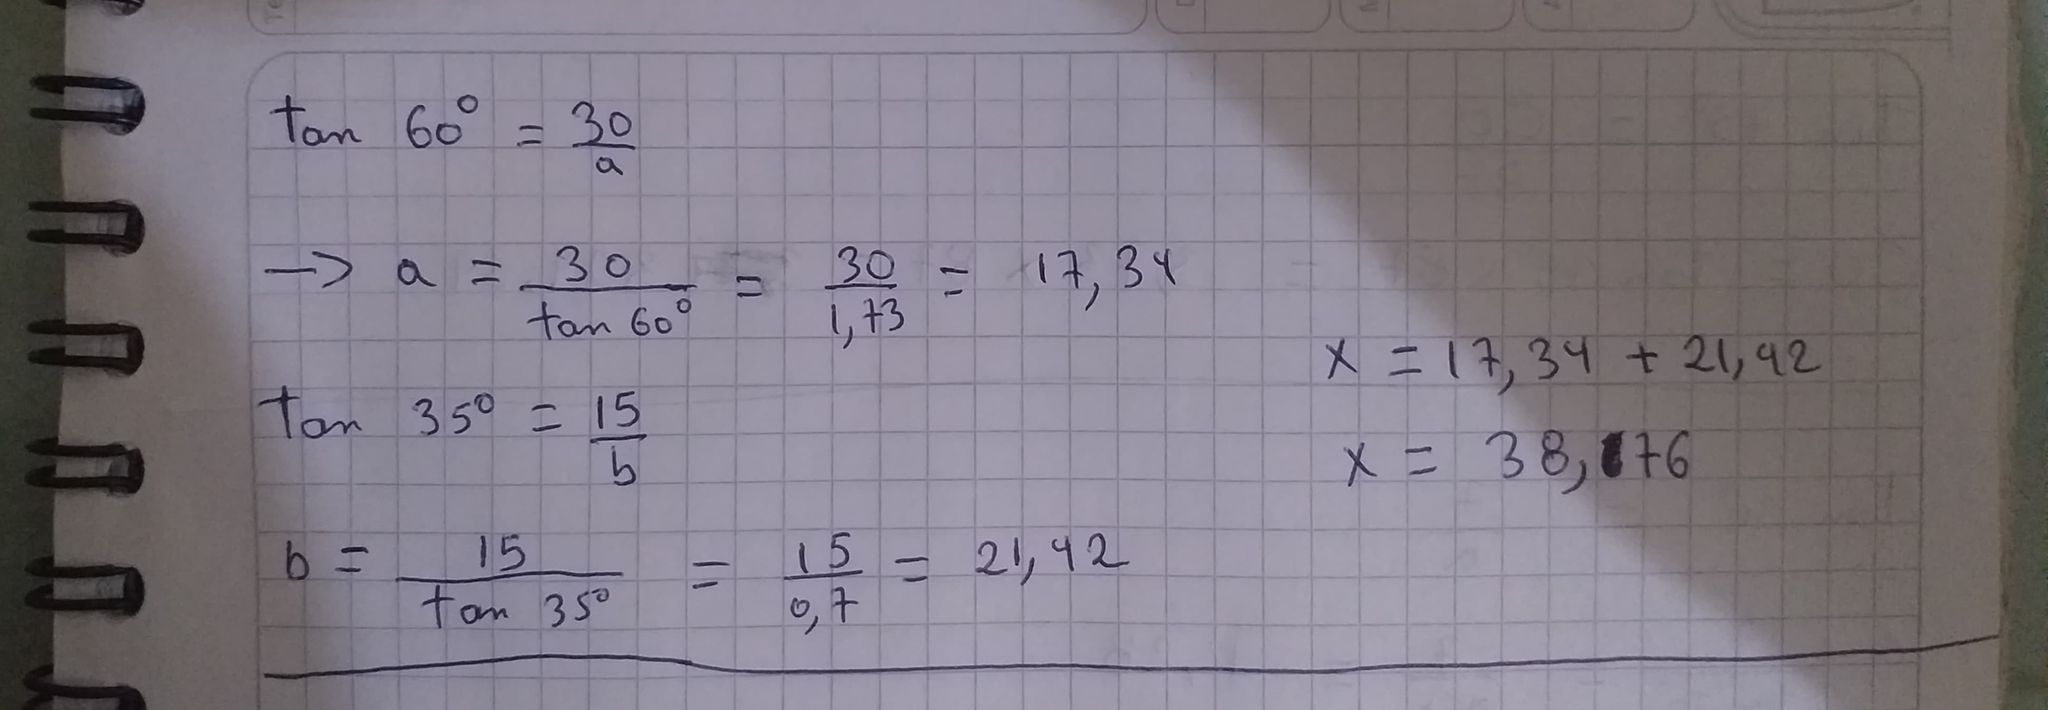 tan 60° = 30/a
→ a = 30/tan 60° = 30/1,73 = 17,34
tan 35° = 15/b
b = 15/tan 35° = 15/0,7 = 21,42
x = 17,34 + 21,42
x = 38,76